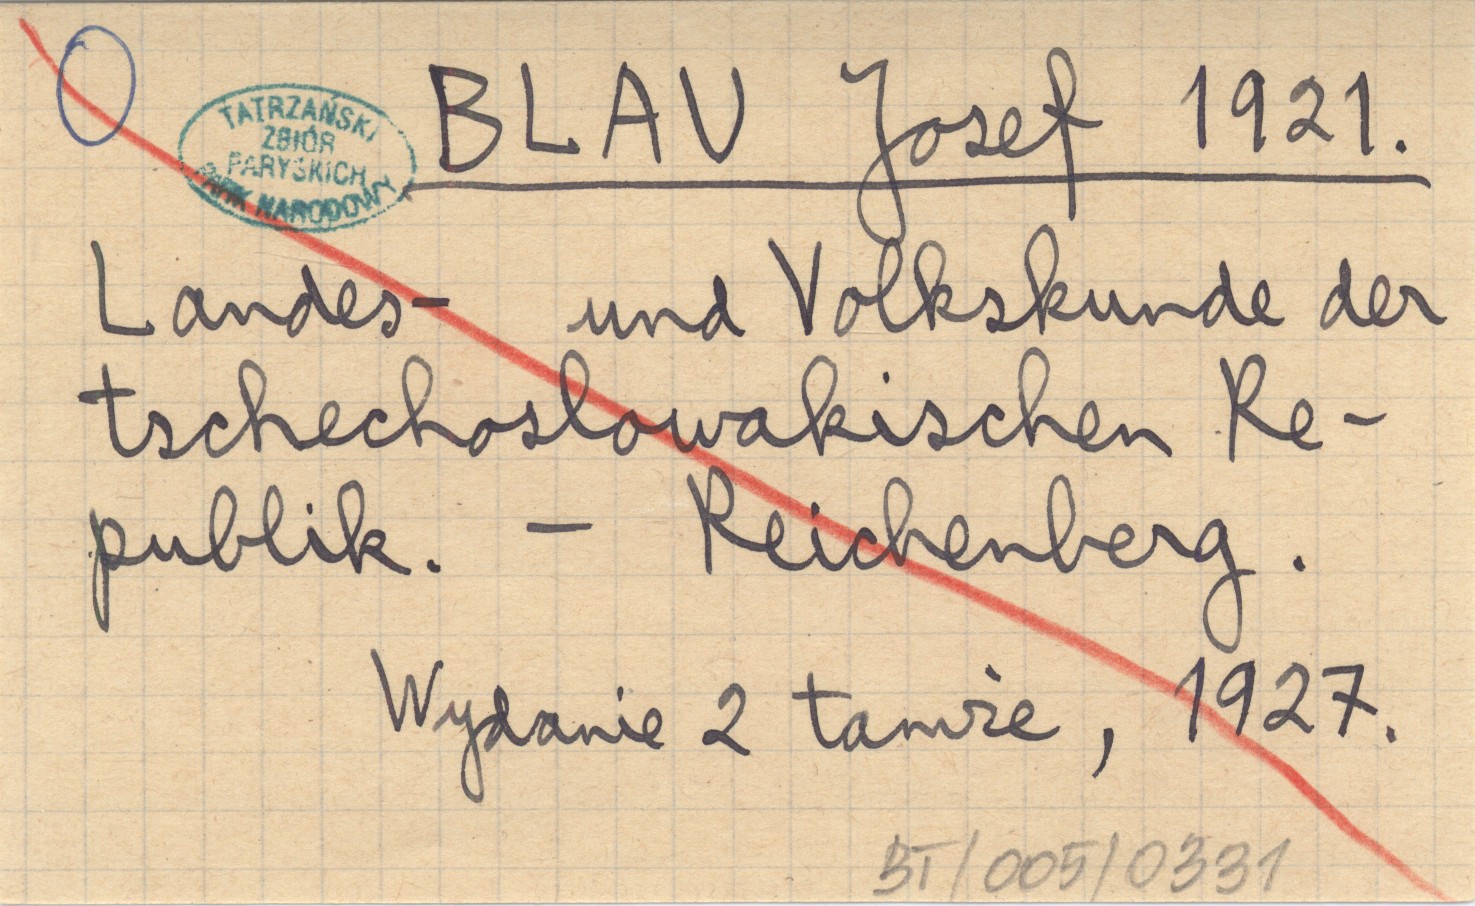 BLAU Josef 1921.
TATRZAŃSKI
ZBIÓR
PARYSKICH
PARK NARODOWY
Landes- und Volkskunde der
tschechoslowakischen Re-
publik. - Reichenberg.
Wydanie 2 tamże, 1927.
BT/005/0331